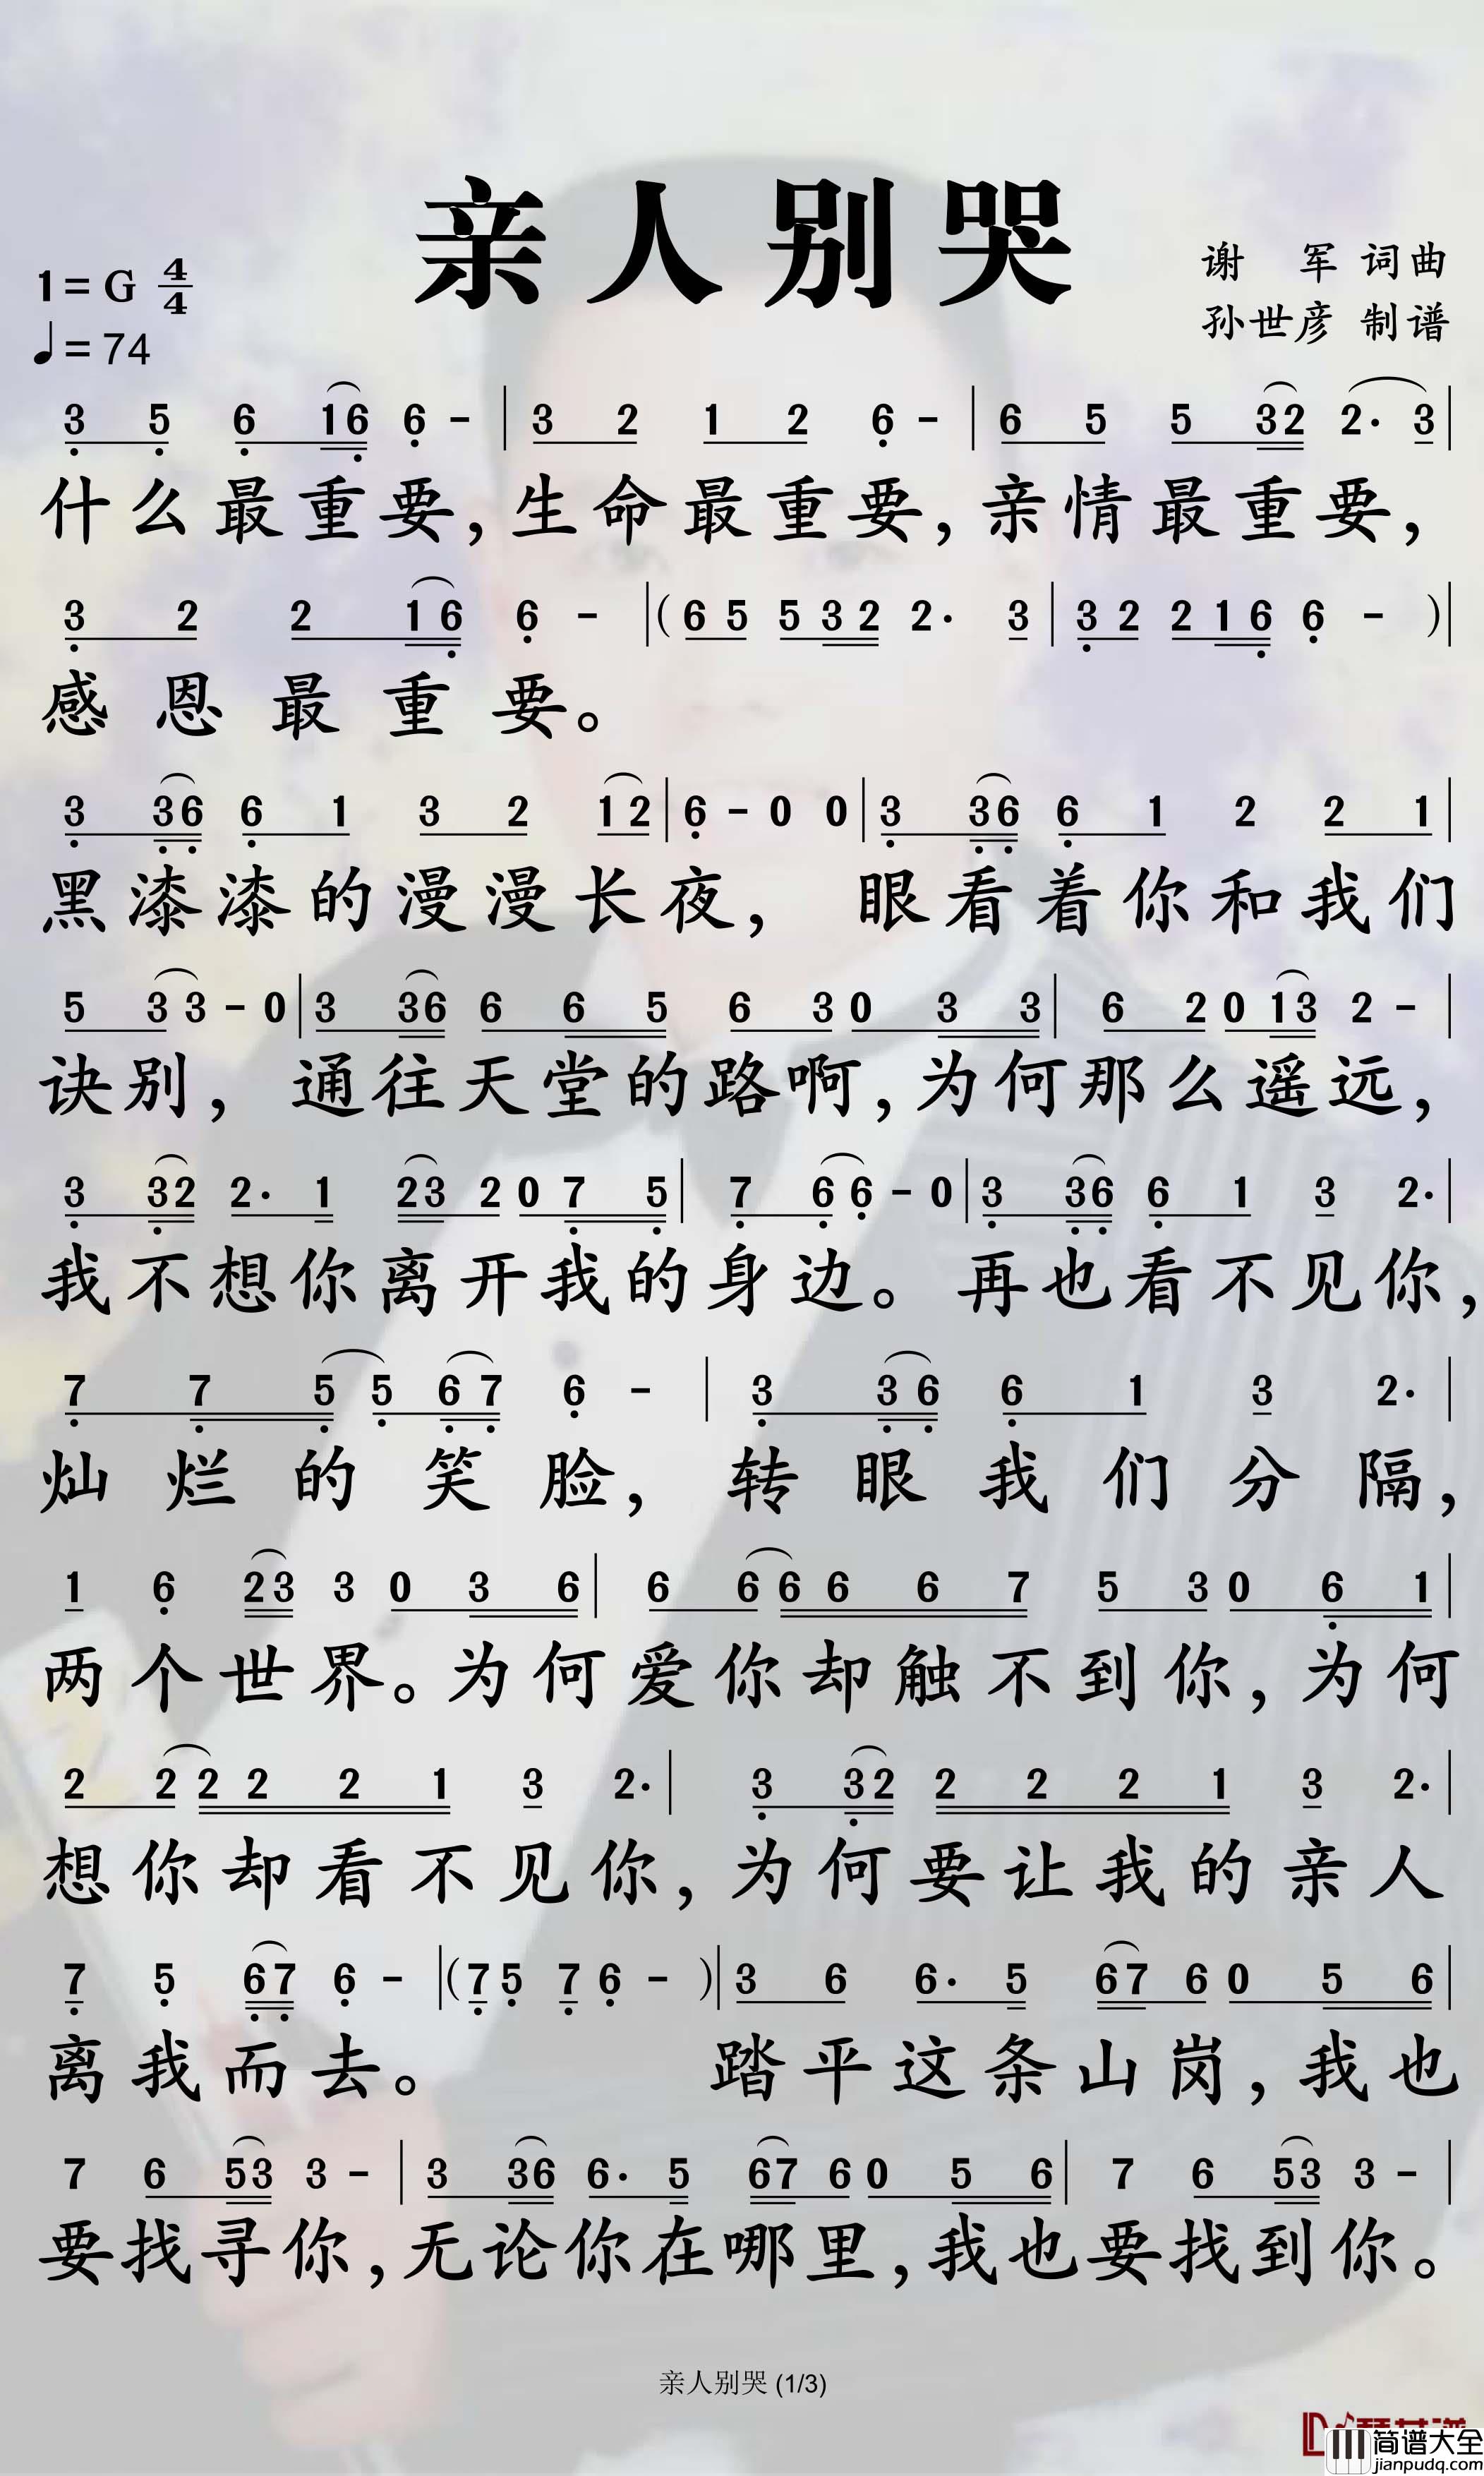 亲人别哭
1=G 4/4
♩=74
谢 军 词曲
孙世彦 制谱
3 5 6 16 6 - | 3 2 1 2 6 - | 6 5 5 32 2· 3 |
什么最重要,生命最重要,亲情最重要,
3 2 2 16 6 - |( 6 5 5 3 2 2· 3 | 3 2 2 1 6 6 - )|
感恩最重要。
3 36 6 1 3 2 12 | 6 - 0 0 | 3 36 6 1 2 2 1 |
黑漆漆的漫漫长夜,眼看着你和我们
5 3 3 - 0 | 3 36 6 6 5 6 3 0 3 3 | 6 2 0 13 2 - |
诀别,通往天堂的路啊,为何那么遥远,
3 32 2· 1 23 2 0 7 5 | 7 6 6 - 0 | 3 36 6 1 3 2· |
我不想你离开我的身边。再也看不见你,
7 7 5 5 6 7 6 - | 3 3 6 6 1 3 2· |
灿烂的笑脸,转眼我们分隔,
1 6 23 3 0 3 6 | 6 6 6 6 6 7 5 3 0 6 1 |
两个世界。为何爱你却触不到你,为何
2 2 2 2 2 1 3 2· | 3 32 2 2 2 1 3 2· |
想你却看不见你,为何要让我的亲人
7 5 67 6 - |( 7 5 7 6 - )| 3 6 6· 5 67 6 0 5 6 |
离我而去。踏平这条山岗,我也
7 6 53 3 - | 3 36 6· 5 67 6 0 5 6 | 7 6 53 3 - |
要找寻你,无论你在哪里,我也要找到你。
亲人别哭 (1/3)
简谱大全
jianpudq.com